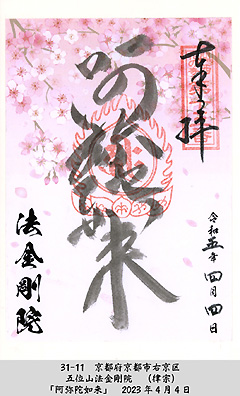 奉拝
阿弥陀如来
令和五年四月四日
法金剛院
31-11 京都府京都市右京区
五位山法金剛院 (律宗)
「阿弥陀如来」 2023年4月4日